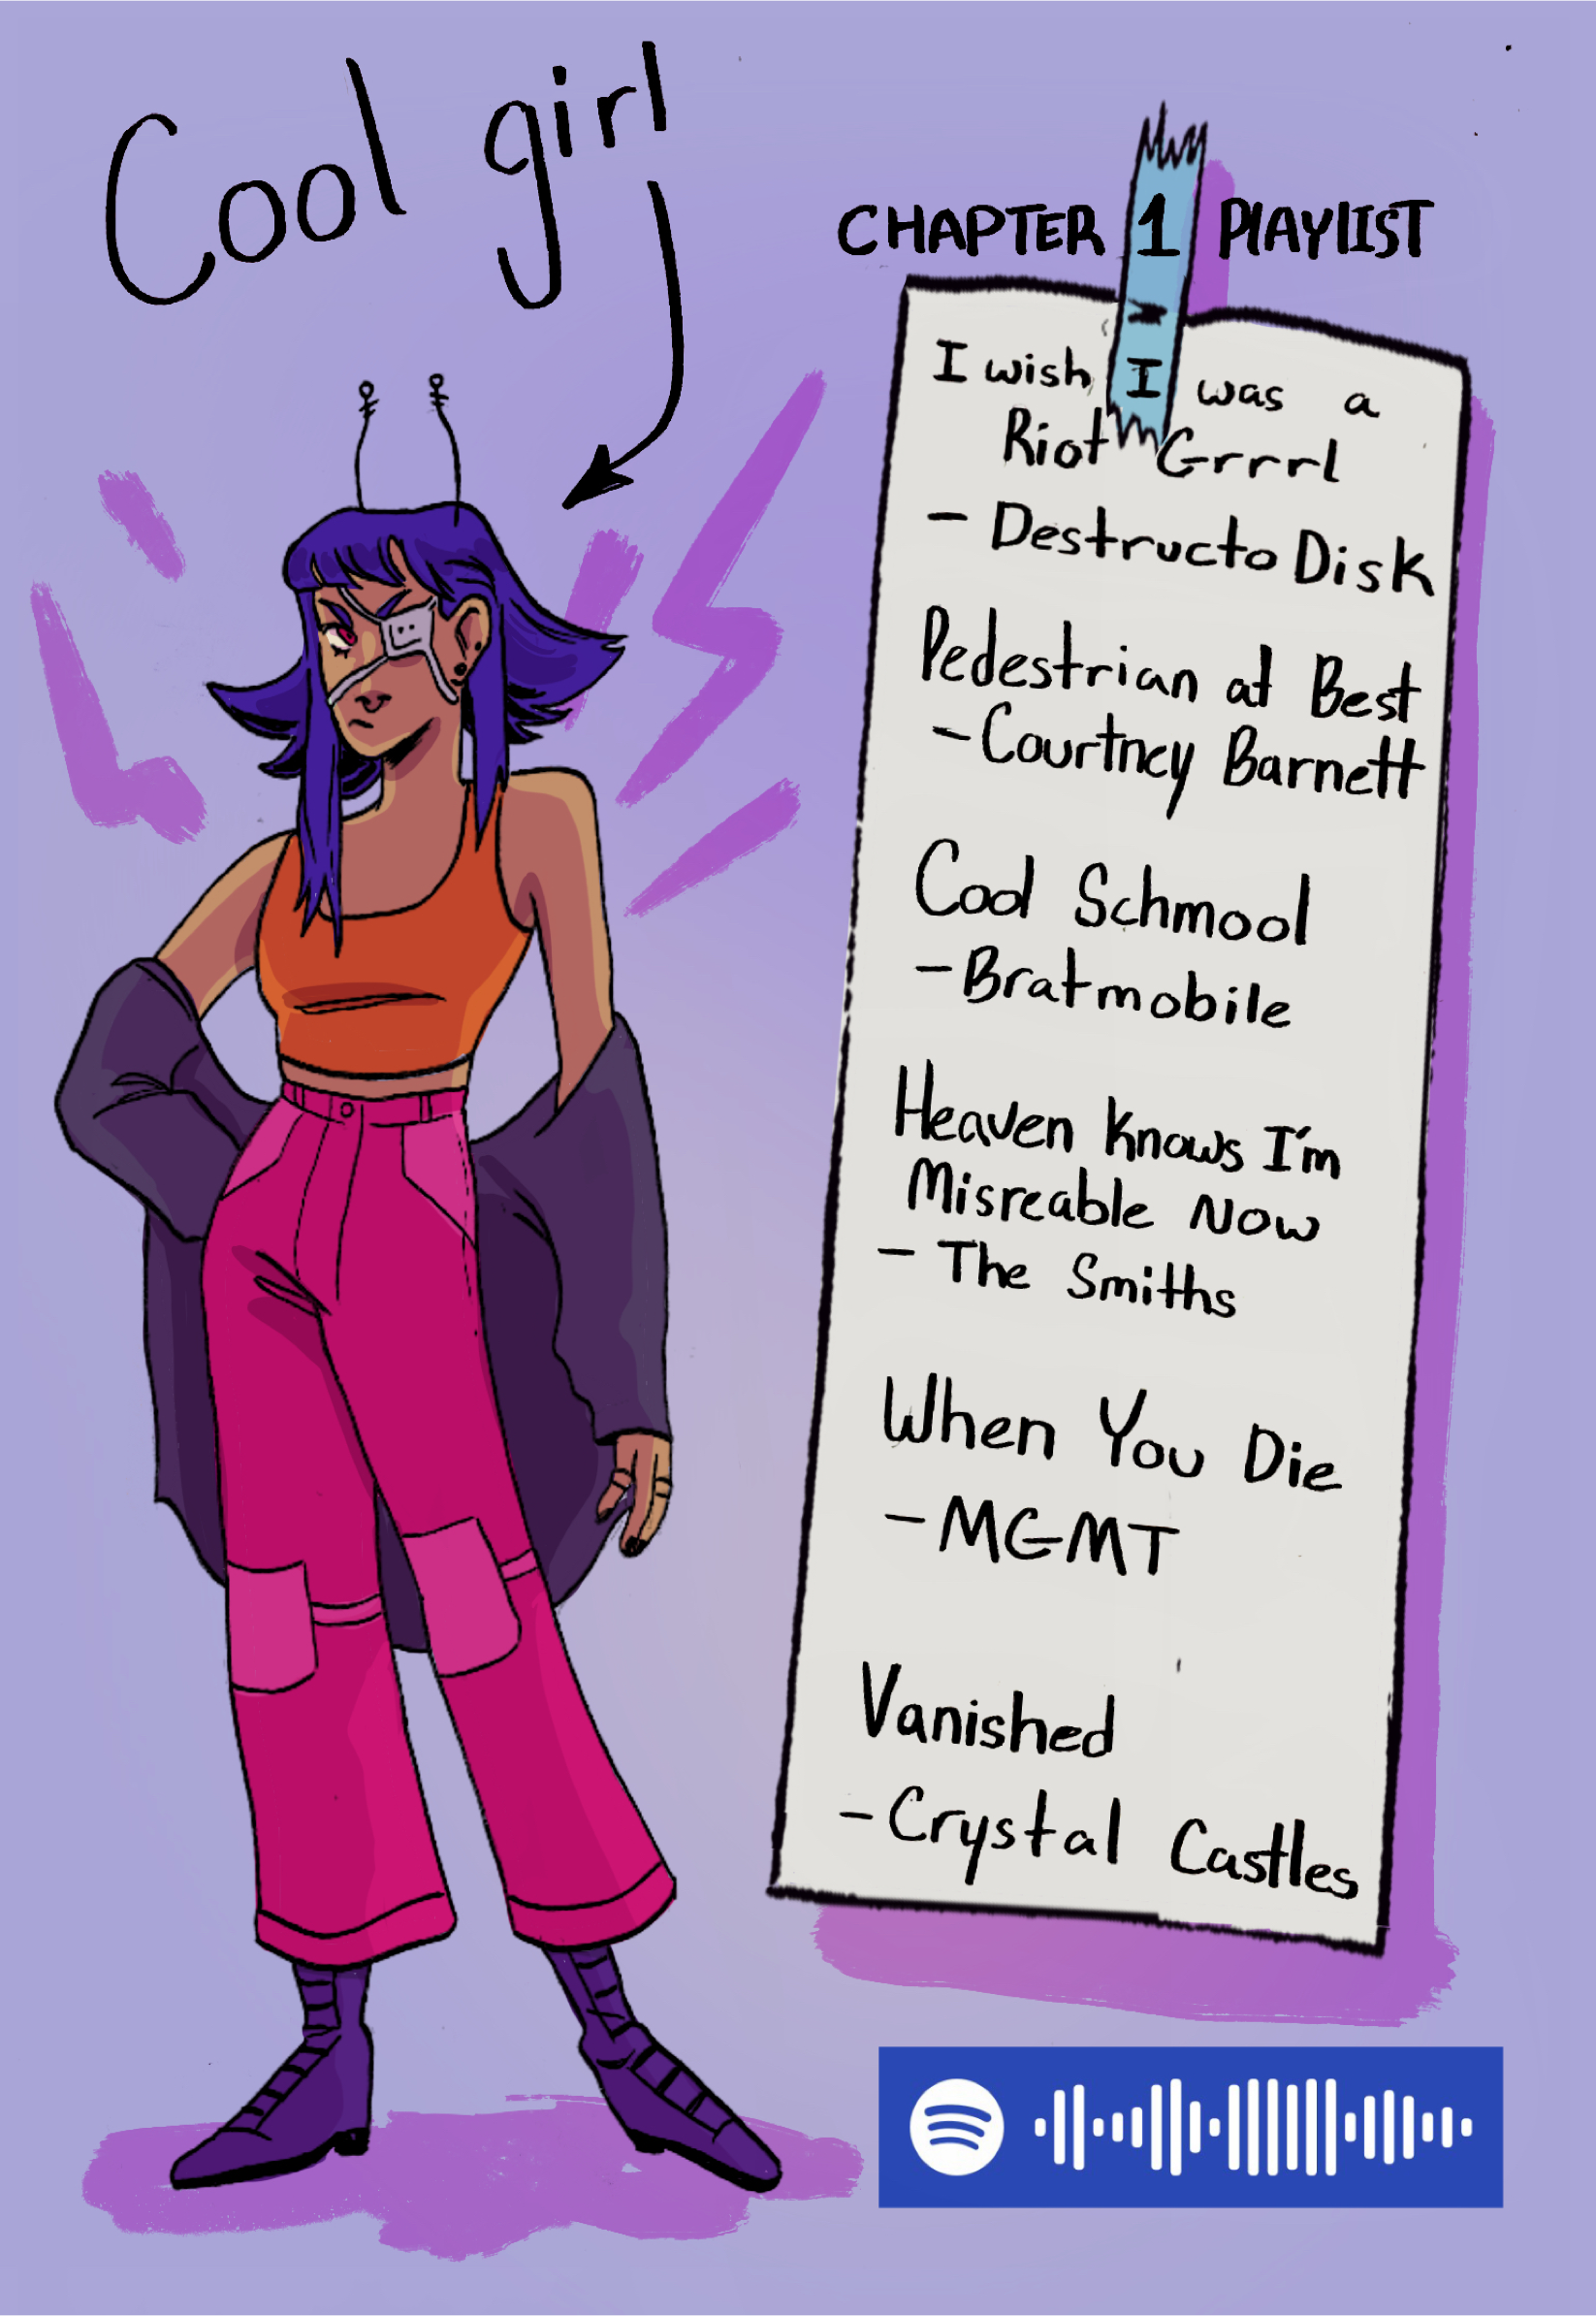 Cool girl
CHAPTER 1 PLAYLIST
I wish I was a
Riot Grrrl
- Destructo Disk
Pedestrian at Best
- Courtney Barnett
Cool Schmool
- Bratmobile
Heaven Knows I'm
Misreable Now
- The Smiths
When You Die
- MGMT
Vanished
- Crystal Castles